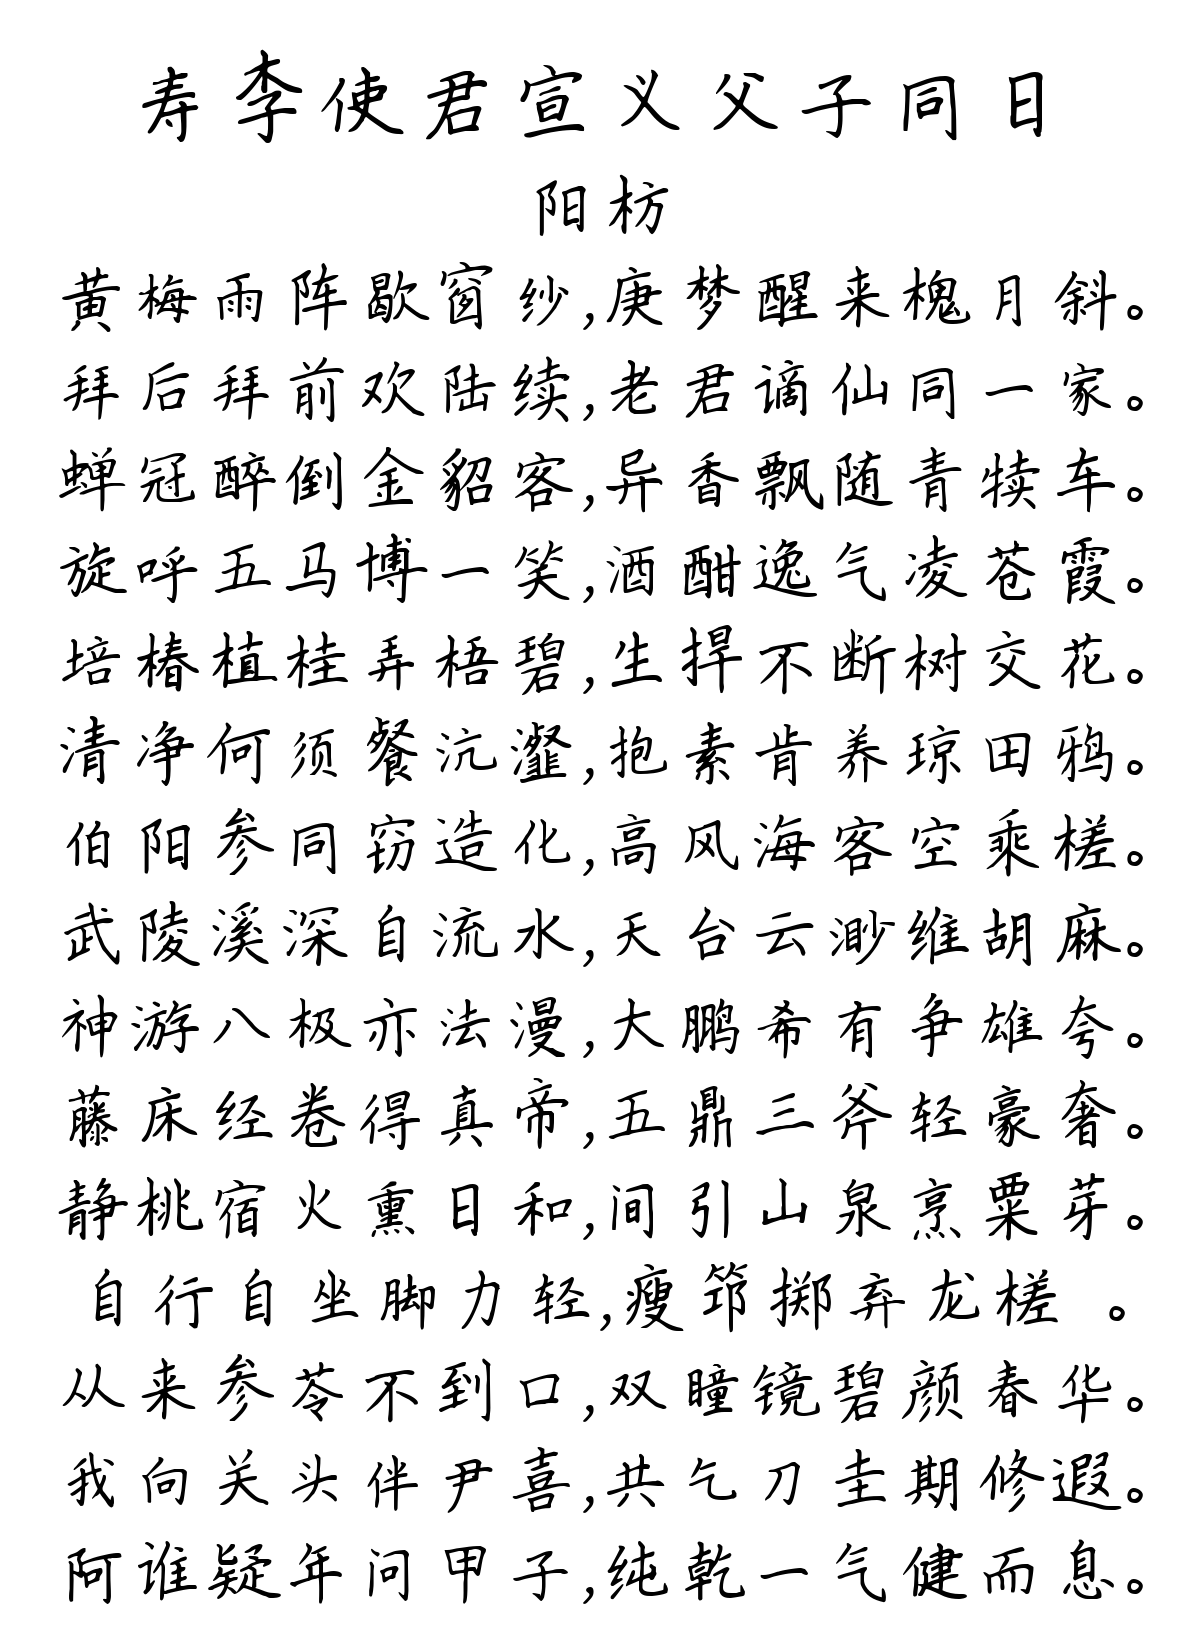 寿李使君宣义父子同日
阳枋
黄梅雨阵歇窗纱,庚梦醒来槐月斜。
拜后拜前欢陆续,老君谪仙同一家。
蝉冠醉倒金貂客,异香飘随青犊车。
旋呼五马博一笑,酒酣逸气凌苍霞。
培椿植桂弄梧碧,生捍不断树交花。
清净何须餐沆瀣,抱素肯养琼田鸦。
伯阳参同窃造化,高风海客空乘槎。
武陵溪深自流水,天台云渺维胡麻。
神游八极亦法漫,大鹏希有争雄夸。
藤床经卷得真帝,五鼎三斧轻豪奢。
静桃宿火熏日和,间引山泉烹粟芽。
自行自坐脚力轻,瘦筇掷弃龙槎 。
从来参苓不到口,双瞳镜碧颜春华。
我向关头伴尹喜,共乞刀圭期修遐。
阿谁疑年问甲子,纯乾一气健而息。